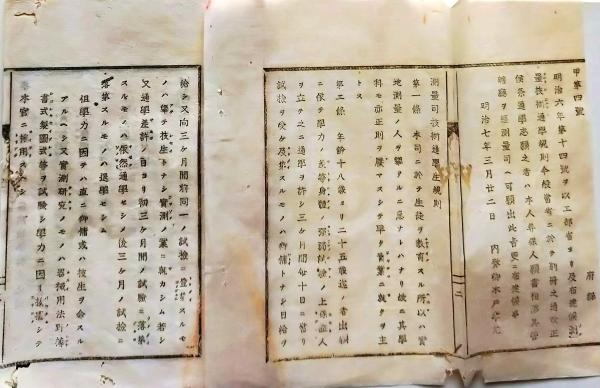 甲第四號
府縣
明治六年第十四號ヲ以工部省ヨリ及布達候測
量技術通學規則今般當省ニ於テ別冊之通改正
候條通學志願之者ハ本人并保人願書相添其管
廳ヲ經測量司ヘ可願出此旨更ニ布達候事
明治七年三月廿二日
內務卿木戶孝允
測量司技術通學生規則
第一條 本司ニ於テ生徒ヲ教育スル所以ハ實
地測量ノ人ヲ擧クルニ急ナトハナリ故ニ其學
科モ亦正則ヲ履マスシテ學ク實業ニ就クヲ主
第二條 年齡十八歲ヨリ二十五歲迄ノ者出願
ニ依テ學力ノ差等身體ノ强弱試驗ノ上保證人
ヲ立テ之ニ通學ヲ許シ三ケ月間每十日ニ當リ
試檢ヲ受ケ及第スルモノハ御傭トナシ日給ヲ
給シ又向三ケ月間前同一ノ試檢ニ登第スルモ
ノハ擧テ技生トナシ實測ノ業ニ與カシム若シ
又通學差許ノ日ヨリ初三ケ月間ノ試驗ニ落第
スルモノハ仍然通學セシメ後三ケ月ノ試檢ニ
落第スルモノハ退學セシム
但學力ニ因テハ直ニ御傭或ハ技生ヲ命スル
アルヘシ又實測研究ノモノハ器械用法對簿
書式製圖成蹟等ヲ試驗シ學力ニ因リ拔擢シテ
本官ニ採用スヘシ